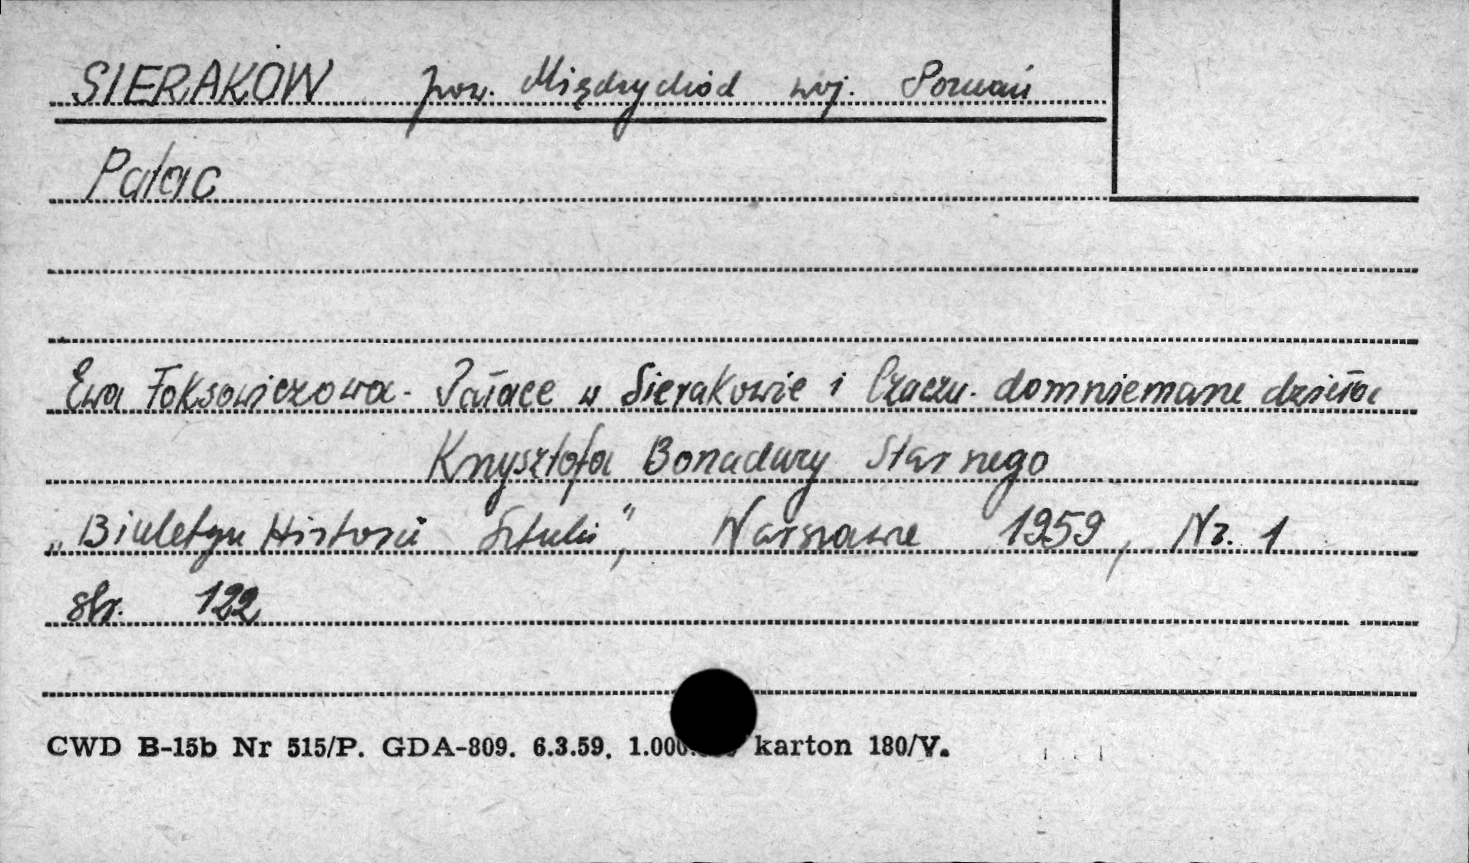 SIERAKÓW pow. Międzychód woj. Poznań
Pałac
Ewa Foksowiczowa - Pałace w Sierakowie i Czaczu - domniemane dzieła
Krzysztofa Bonadury Starszego
„Biuletyn Historii Sztuki", Warszawa 1959, Nr. 1
str. 122
CWD B-15b Nr 515/P. GDA-809. 6.3.59. 1.000. karton 180/V.